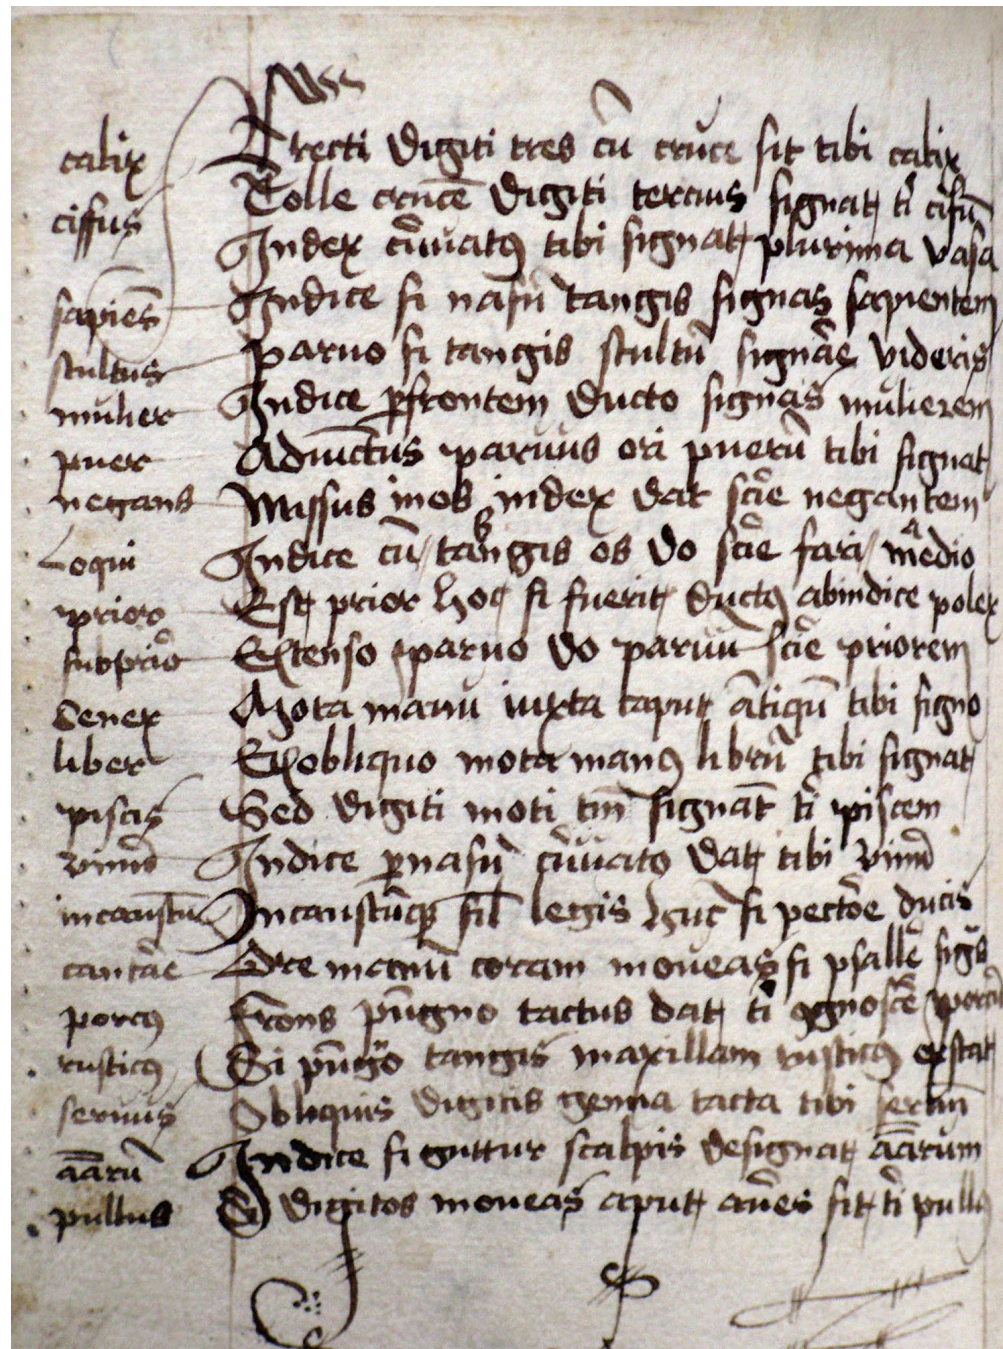 calix Arecti digiti tres cū cruce sit tibi calix
ciffus Tolle crucē digiti tercius signat tͥ cifū
Index cͥuatꝰ tibi signat plurima vasa
sapiēs Indice si nasū tangis signas sapientem
stultus paruo si tangis stultū signāe videris
mulier Indice ꝑfrontem ducto signas mulierem
puer Adiūctus paruus ori puerū tibi signat
negans Missus inos index dat scīe negantem
Loqui Indice cū b tangis os do scīe fari a medio
prior Est prior hoc si fuerit ductꝰ abindice polex
supprior Extenso paruo do paruū scīe priorem
Senex Mota manu iuxta caput ātiqū tibi signo
liber Exobliquo mota manꝰ librū tibi signat
piscis Sed digiti moti tm̄ signāt tͥ piscem
vinū Indice ꝑnasū cͥuato dat tibi vinū
incaustū Incaustūqꝫ legis huc si pectore ducis
cantāe Ore manū coram moueas si psalle͛ sigͣs
porcꝰ Frons pūgno tactus dat tͥ ꝯgnosce͛ porcū
rusticꝰ Si pūgͦ tangis maxillam rusticꝰ exstat
seruus Obliquis digitis genua tacta tibi seruū
aāru Indice si guttur scalpis designat aārum
pullus Si digitos moueas aput aūes sit tͥ pullꝰ